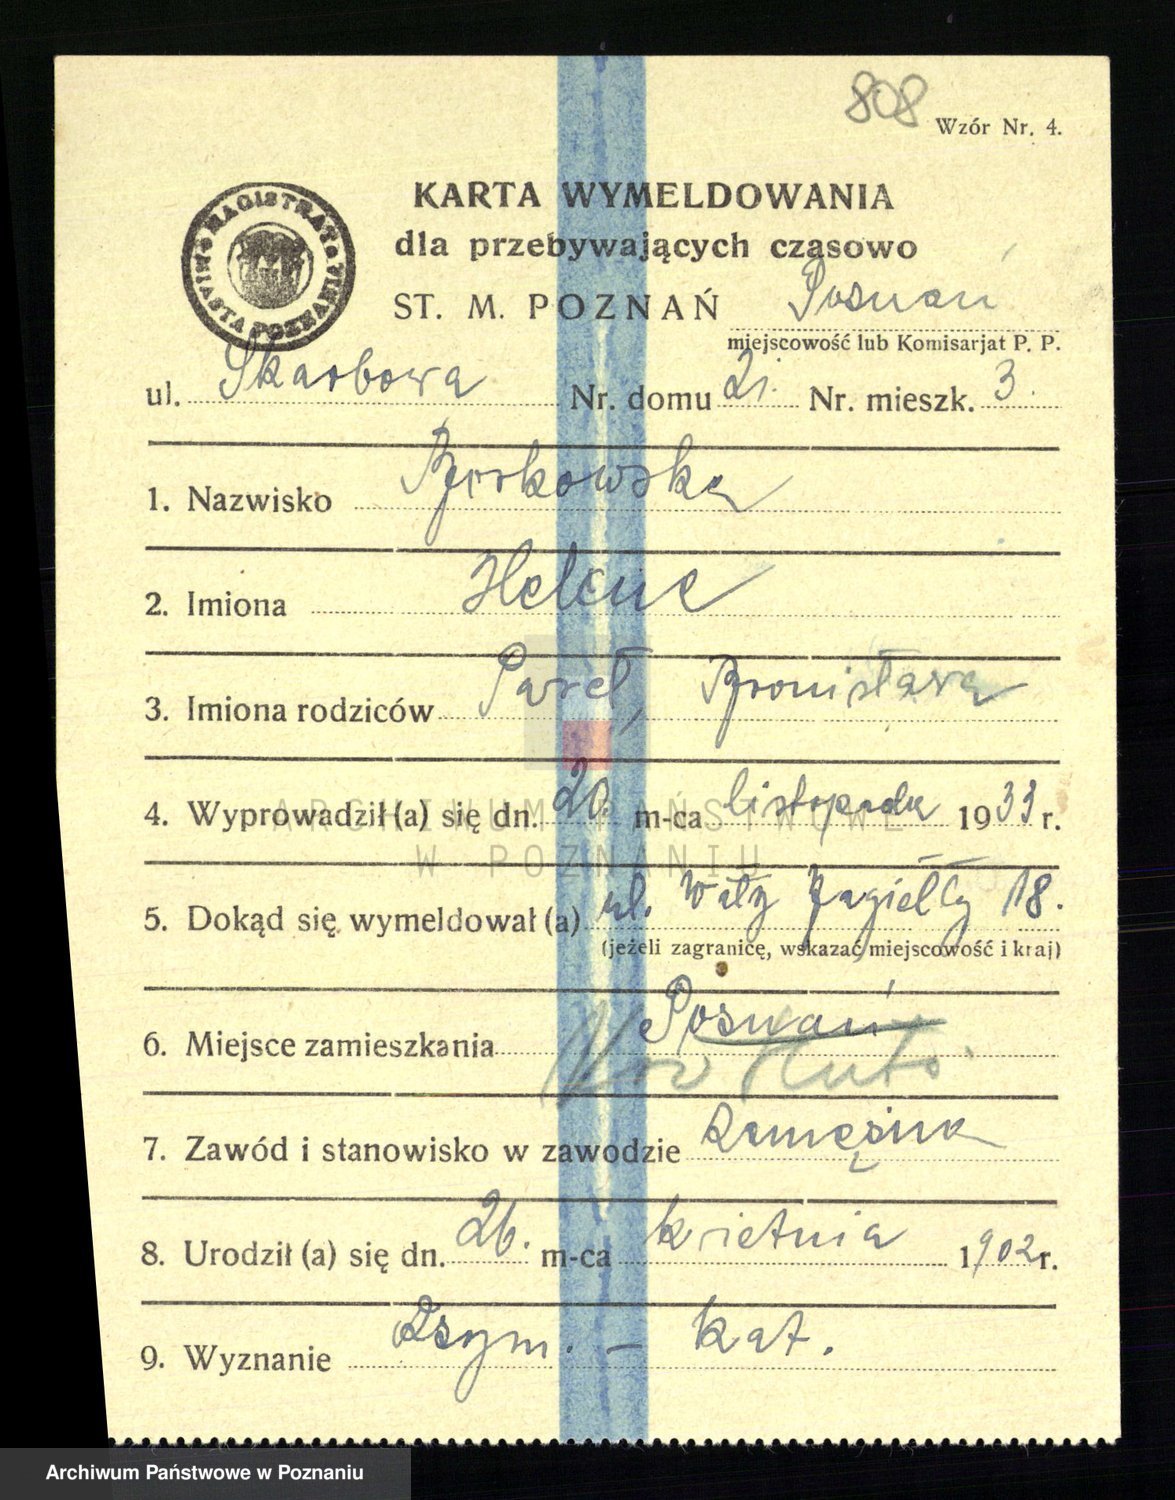 808
Wzór Nr. 4.
MAGISTRAT MIASTA POZNANIA
KARTA WYMELDOWANIA
dla przebywających czasowo
ST. M. POZNAŃ Poznań
miejscowość lub Komisarjat P. P.
ul. Skarbowa Nr. domu 21. Nr. mieszk. 3.
1. Nazwisko
2. Imiona Helena
3. Imiona rodziców Paweł, Bronisława
4. Wyprowadził (a) się dn. 20. m-ca listopada 1933 r.
ARCHIWUM PAŃSTWOWE
W POZNANIU
5. Dokąd się wymeldował (a) ul. Wały Jagiełły 18.
(jeżeli zagranicę, wskazać miejscowość i kraj)
6. Miejsce zamieszkania Poznań
7. Zawód i stanowisko w zawodzie zamężna
8. Urodził (a) się dn. 26. m-ca kwietnia 1902 r.
9. Wyznanie Rzym. - kat.
Archiwum Państwowe w Poznaniu